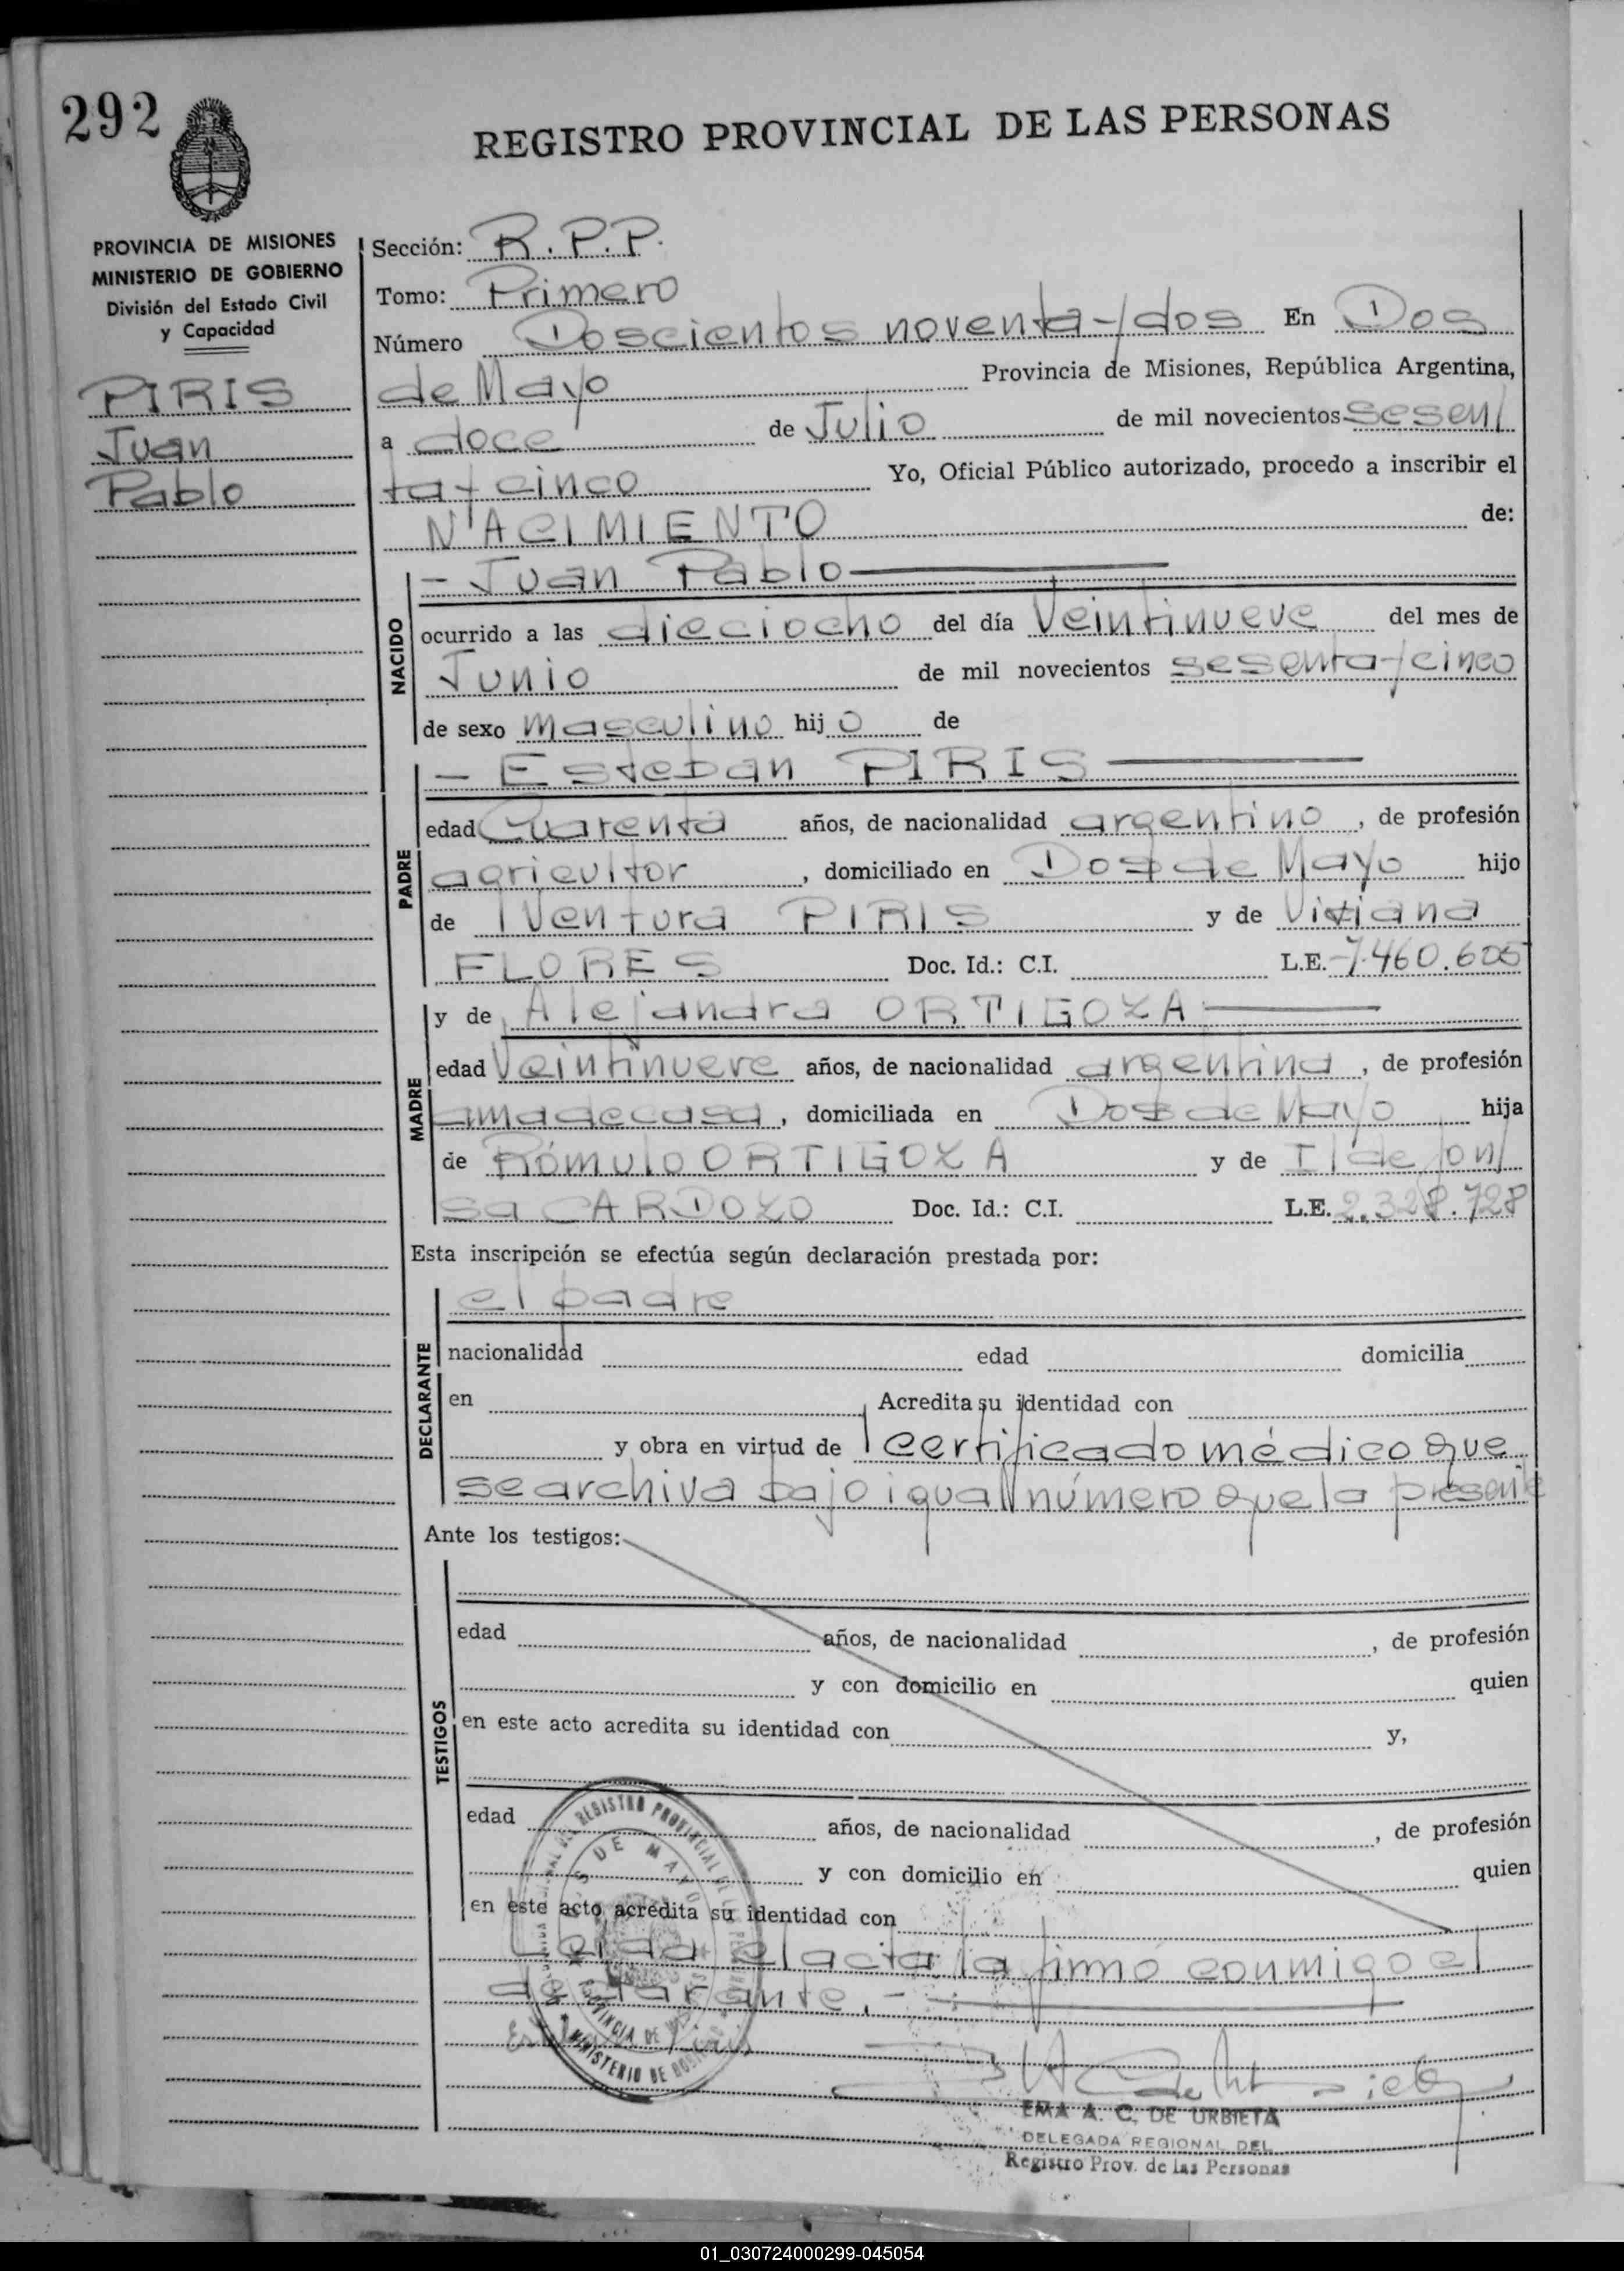 292
REGISTRO PROVINCIAL DE LAS PERSONAS
PROVINCIA DE MISIONES
MINISTERIO DE GOBIERNO
División del Estado Civil
y Capacidad
PIRIS
Juan
Pablo
Sección: R.P.P.
Tomo: Primero
Número Doscientos noventa y dos En Dos
de Mayo Provincia de Misiones, República Argentina,
a doce de Julio de mil novecientos sesen/
ta y cinco Yo, Oficial Público autorizado, procedo a inscribir el
NACIMIENTO de:
NACIDO
- Juan Pablo
ocurrido a las dieciocho del día Veintinueve del mes de
Junio de mil novecientos sesenta y cinco
de sexo masculino hijo de
PADRE
- Esteban PIRIS
edad Cuarenta años, de nacionalidad argentino, de profesión
agricultor, domiciliado en Dos de Mayo hijo
de Ventura PIRIS y de Viviana
FLORES Doc. Id.: C.I. L.E. 7.460.605
MADRE
y de Alejandra ORTIGOZA
edad Veintinueve años, de nacionalidad argentina, de profesión
ama de casa, domiciliada en Dos de Mayo hija
de Rómulo ORTIGOZA y de Ildefon/
sa CARDOZO Doc. Id.: C.I. L.E. 2.328.728
Esta inscripción se efectúa según declaración prestada por:
DECLARANTE
el padre
nacionalidad edad domicilia
en Acredita su identidad con
y obra en virtud de certificado médico que
se archiva bajo igual número que la presente
Ante los testigos:
TESTIGOS
edad años, de nacionalidad , de profesión
y con domicilio en quien
en este acto acredita su identidad con y,
edad años, de nacionalidad , de profesión
y con domicilio en quien
en este acto acredita su identidad con
Leída el acta la firmó conmigo el
declarante.-
Esteban Piris
EMA A. C. DE URBIETA
DELEGADA REGIONAL DEL
Registro Prov. de las Personas
01_030724000299-045054